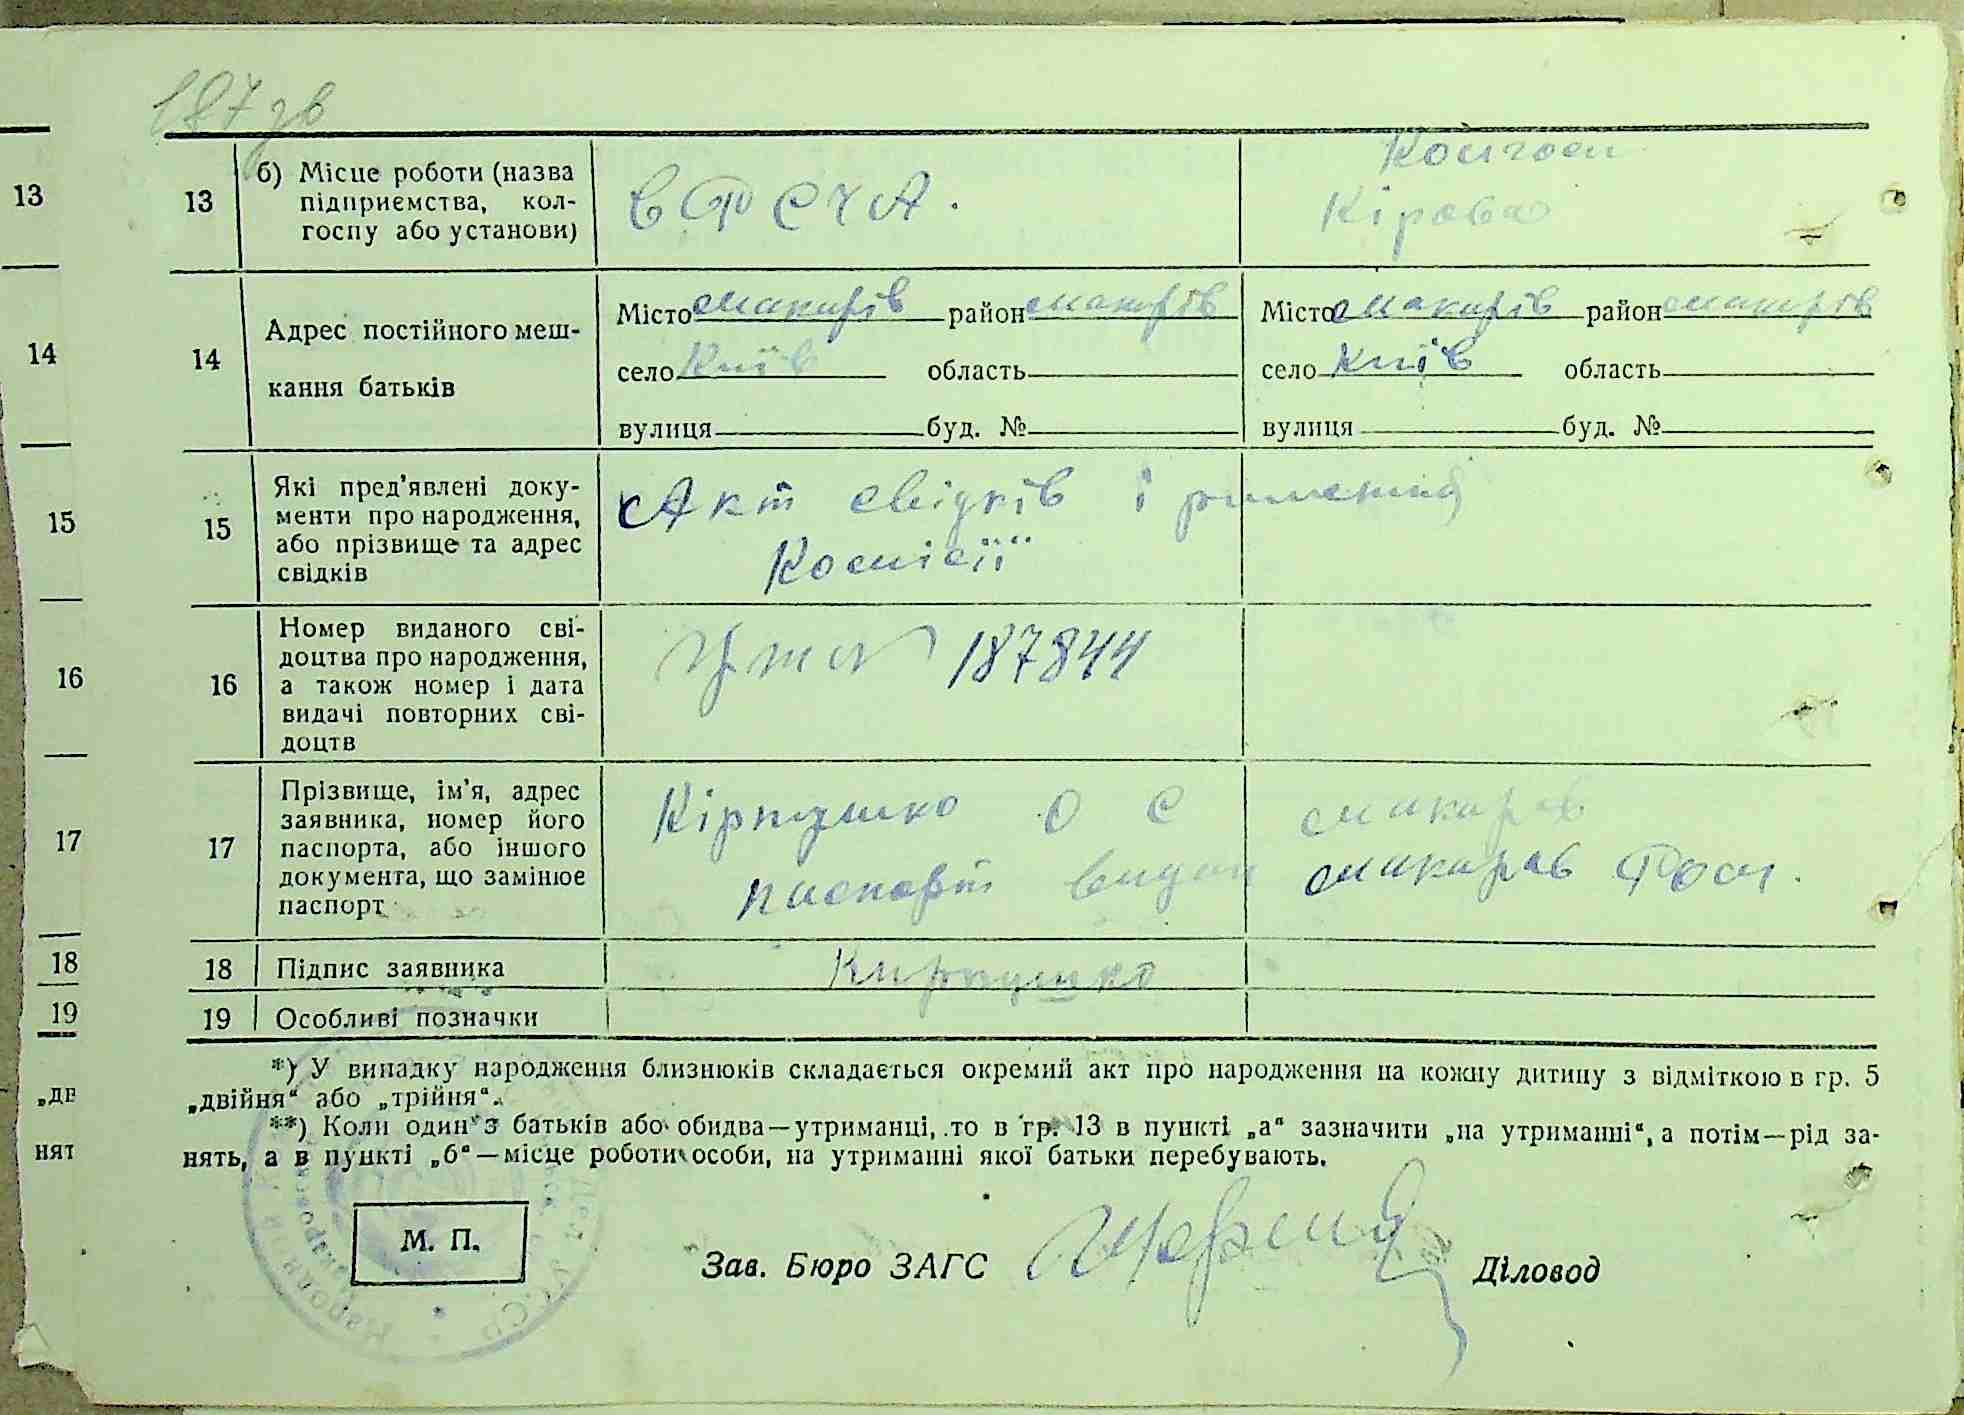 187 зв
13 13 б) Місце роботи (назва
підприємства, кол-
госпу або установи)
в Р С Ч А.
Колгосп
Кірова
14 14 Адрес постійного меш-
кання батьків
Місто Макарів район Макарів
село Київ область
вулиця буд. №
Місто Макарів район Макарів
село Київ область
вулиця буд. №
15 15 Які пред'явлені доку-
менти про народження,
або прізвище та адрес
свідків
Акт свідків і
Комісії
16 16 Номер виданого сві-
доцтва про народження,
а також номер і дата
видачі повторних сві-
доцтв
187844
17 17 Прізвище, ім'я, адрес
заявника, номер його
паспорта, або іншого
документа, що замінює
паспорт
Кірпушко О С Макарів
паспорт видан Макарів
18 18 Підпис заявника Кирпушко
19 19 Особливі позначки
*) У випадку народження близнюків складається окремий акт про народження на кожну дитину з відміткою в гр. 5
„дв „двійня“ або „трійня“.
**) Коли один з батьків або обидва—утриманці, то в гр. 13 в пункті „а“ зазначити „на утриманні“, а потім—рід за-
нят нять, а в пункті „б“—місце роботи особи, на утриманні якої батьки перебувають.
М. П.
Зав. Бюро ЗАГС Діловод